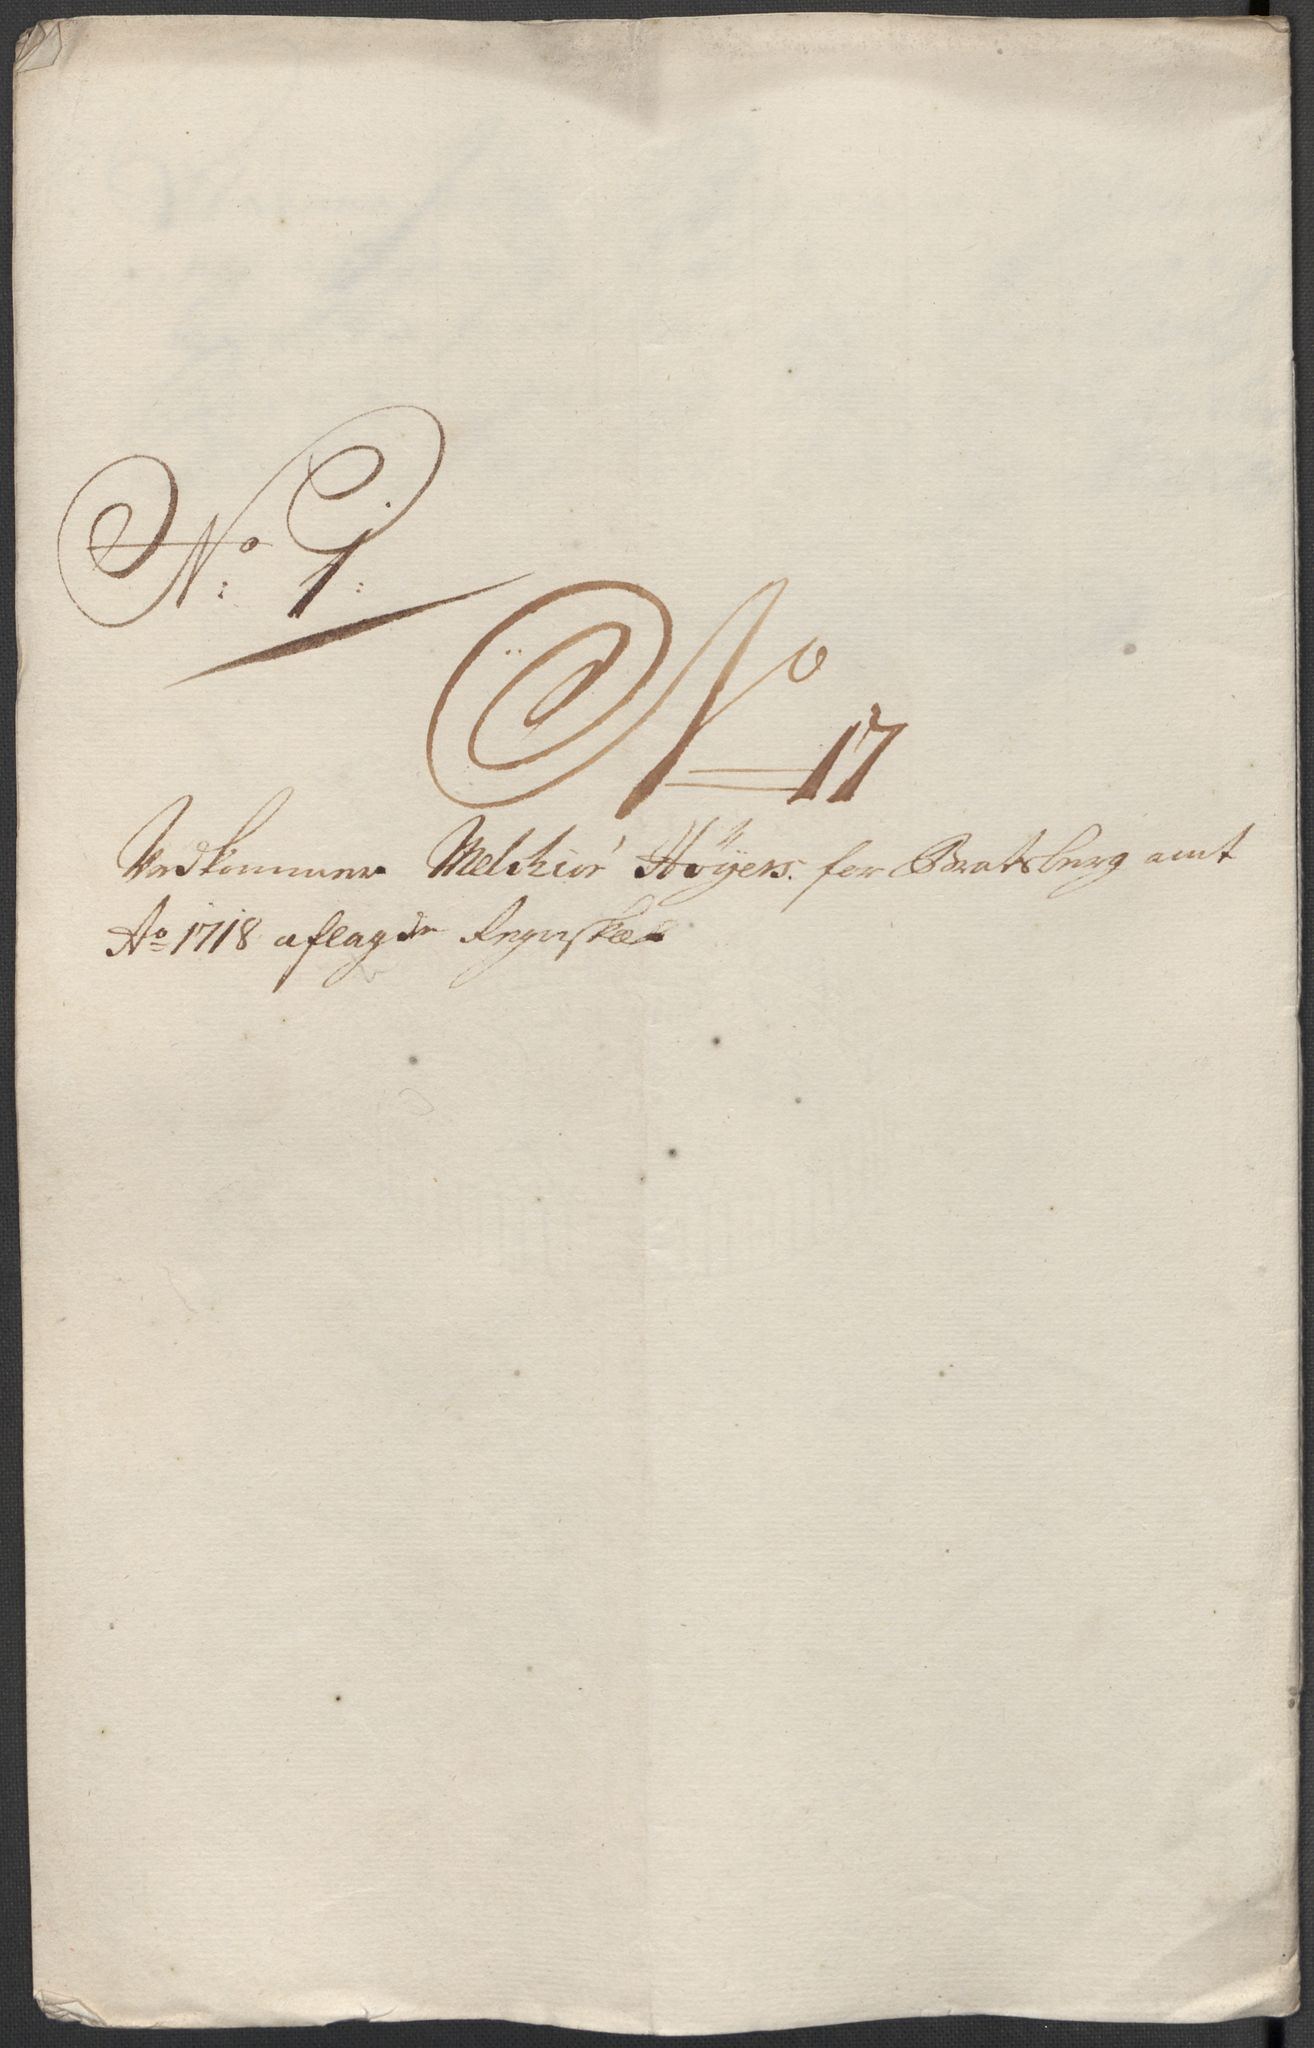 No: 1:
No 17
Vedkommer Melchior Høÿers. for Bratsberg amt
Ao 1718 aflagde Regnskab